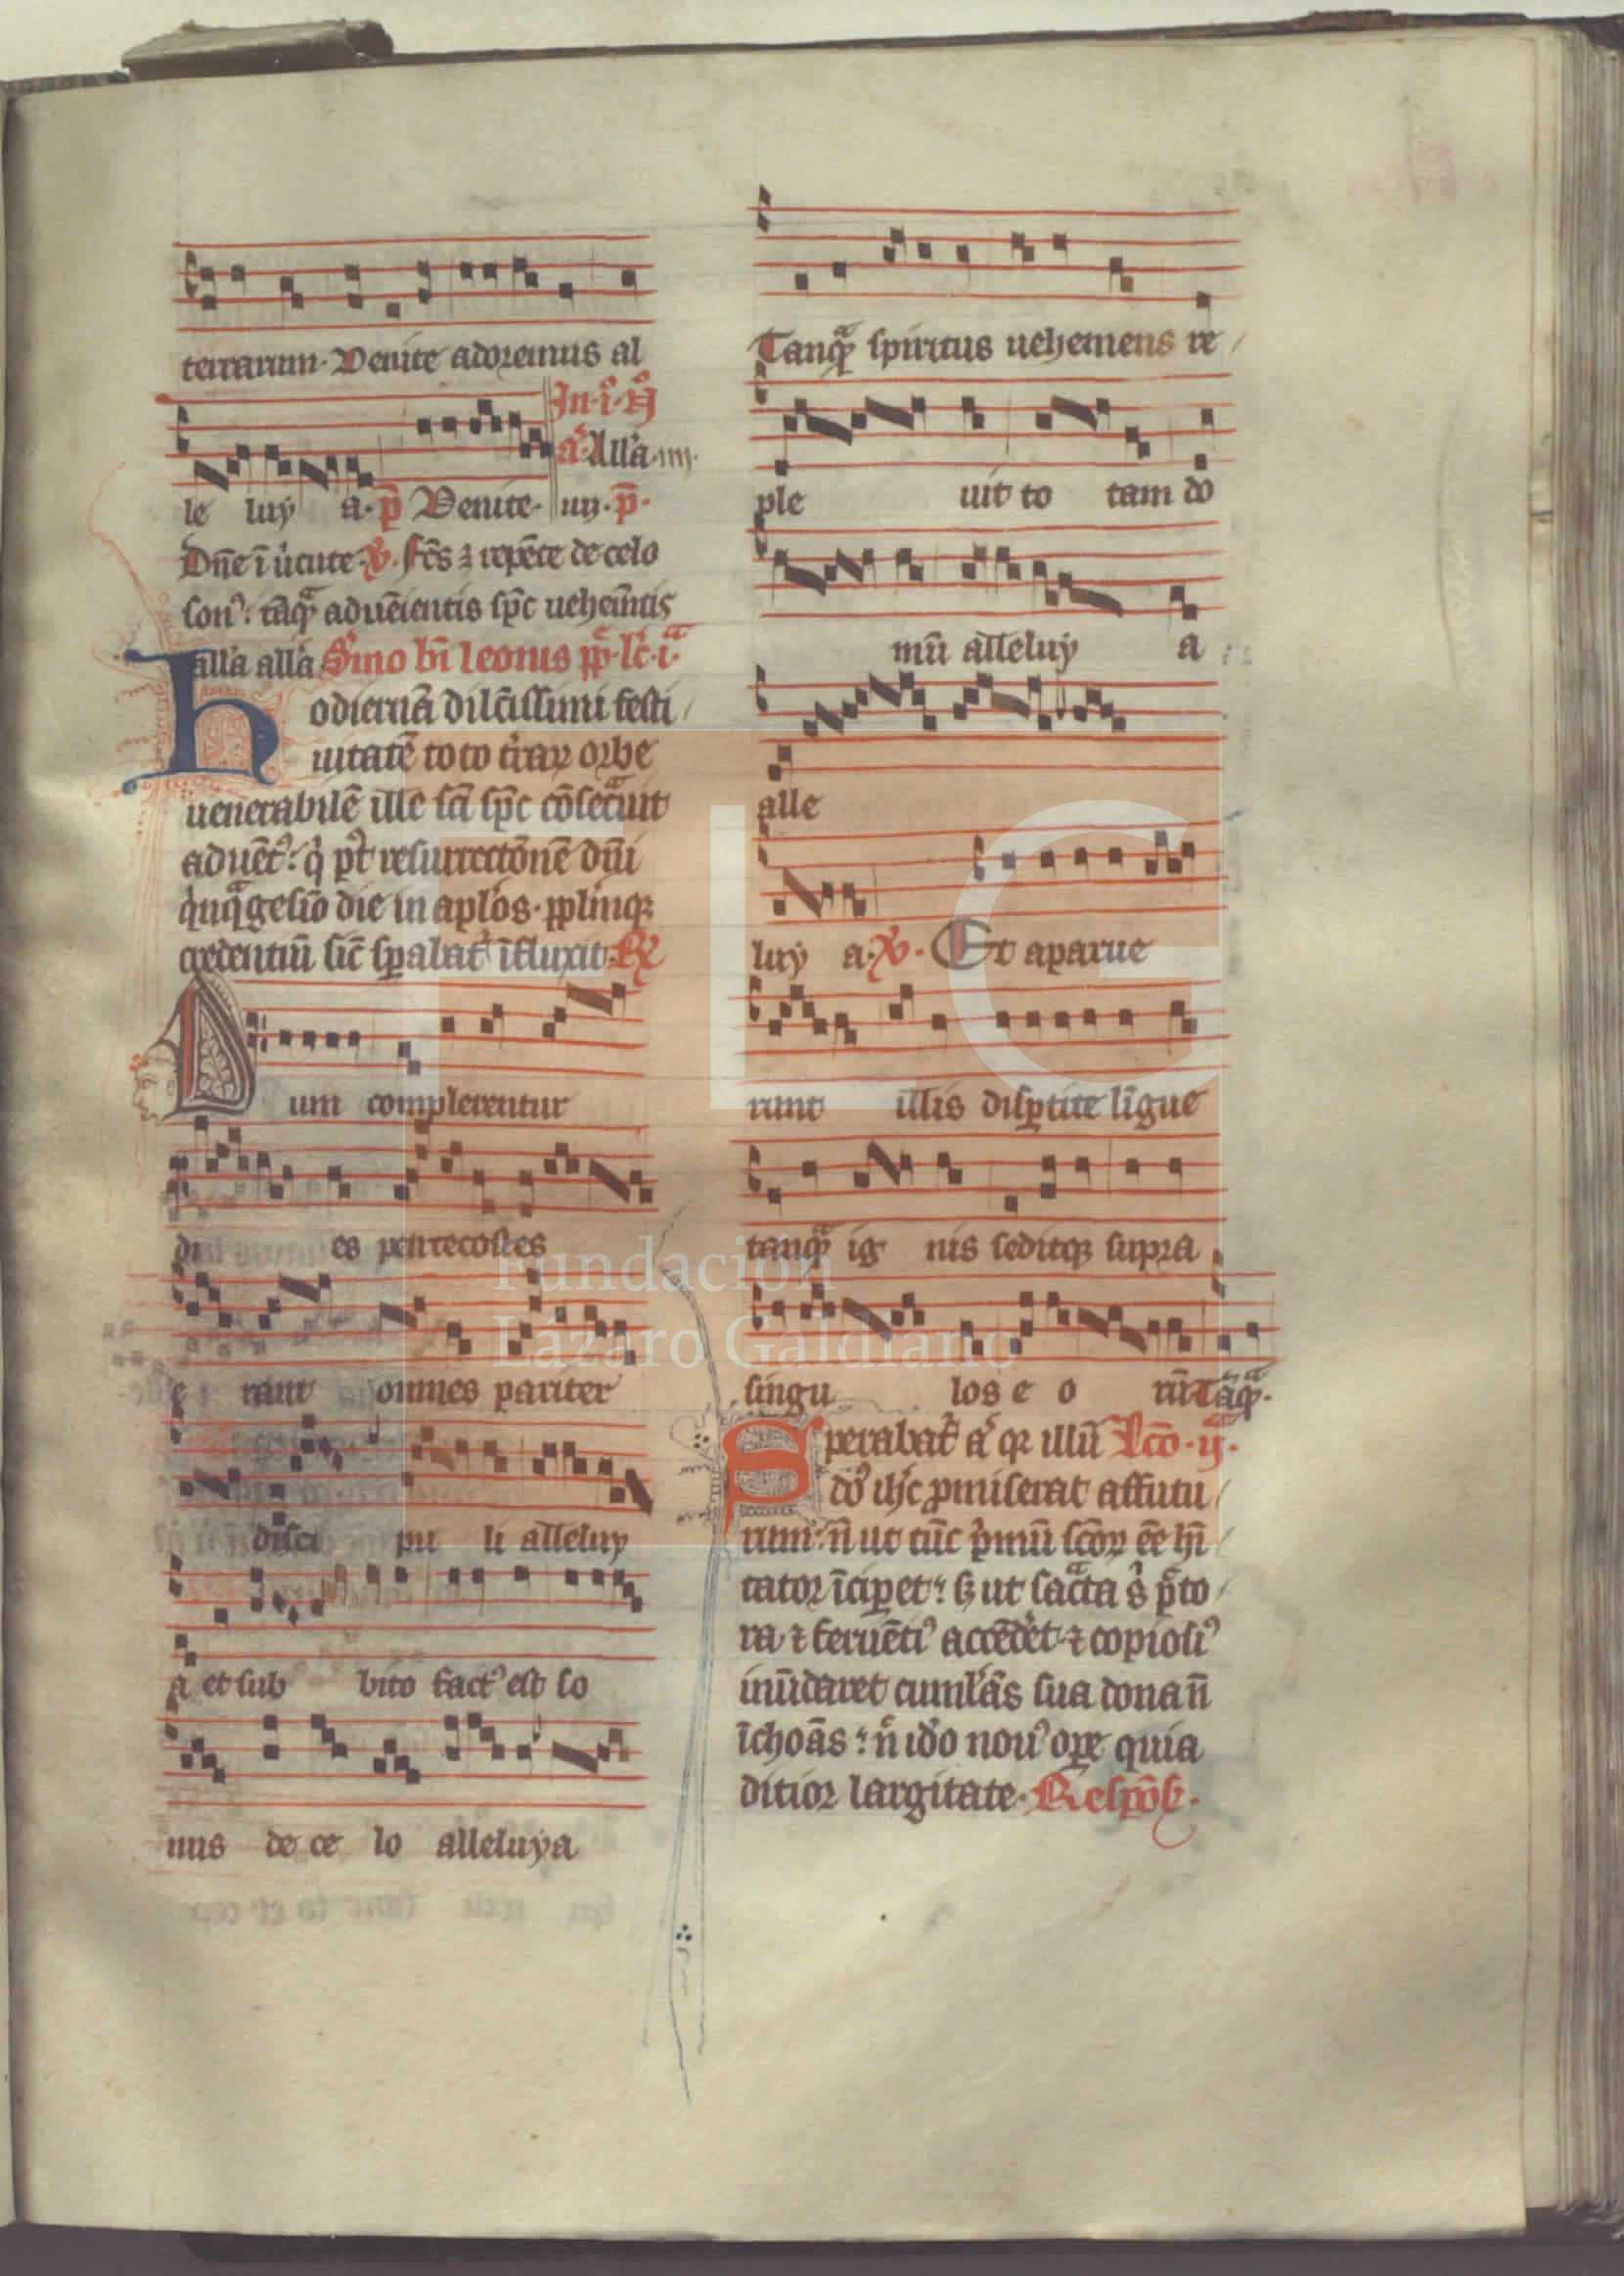 terrarum. Venite adoremus al
In .i. N̊
a᷎. All'a .iiii.
le luy a. p̄ Venite. iiij. p̄.
Dn̄e ī u᷎tute. V̷. Fc̄s ⁊ repēte de celo
son᷒. tāqᷓ aduēientis sp̄c uehem̄tis
all'a all'a S᷎mo bī leonis pp̄. lc̄. i.ª
hodiernā dilc̄issimi festi
uitatē toto t᷎raꝝ orbe
uenerabilē ille sc̄i sp̄c cōsecᷓuit
aduēt᷒. q᷎ pt᷎ resurrectōnē dn̄i
q᷎nqᷓgesīo die in apl'os. ꝓplīnqꝫ
credentiū sic̄ sꝑabat᷎ īfluxit. R̷
Dum complerentur
di es pentecostes
e rant omnes pariter
disci pu li alleluy
a et sub bito fact᷒ est so
nus de ce lo alleluya
Tanqᷓ spiritus uehemens re
ple uit to tam do
mū alleluy a
alle
luy a. V̷. Et aparue
runt illis disꝑtite līgue
tanqᷓ ig nis seditqꝫ supra
singu los e o rū Tāqᷓ.
Sperabat᷎ a᷎ qꝛ illū Lcō. ij.ª
dō ih̄c ꝓmiserat affutu
rum. n̄ ut tūc p᷎mū sc̄oꝝ ēe hī
tator īciꝑet. sꝫ ut sacᷓta s᷎ pᷓcto
ra ⁊ feruēti᷒ accēdet᷎ ⁊ copiosi᷒
inūdaret cumlās sua dona n̄
īchoās. n̄ idō nou᷒ oꝑe quia
ditior largitate. Respōs.
FLG
Fundación
Lázaro Galdiano